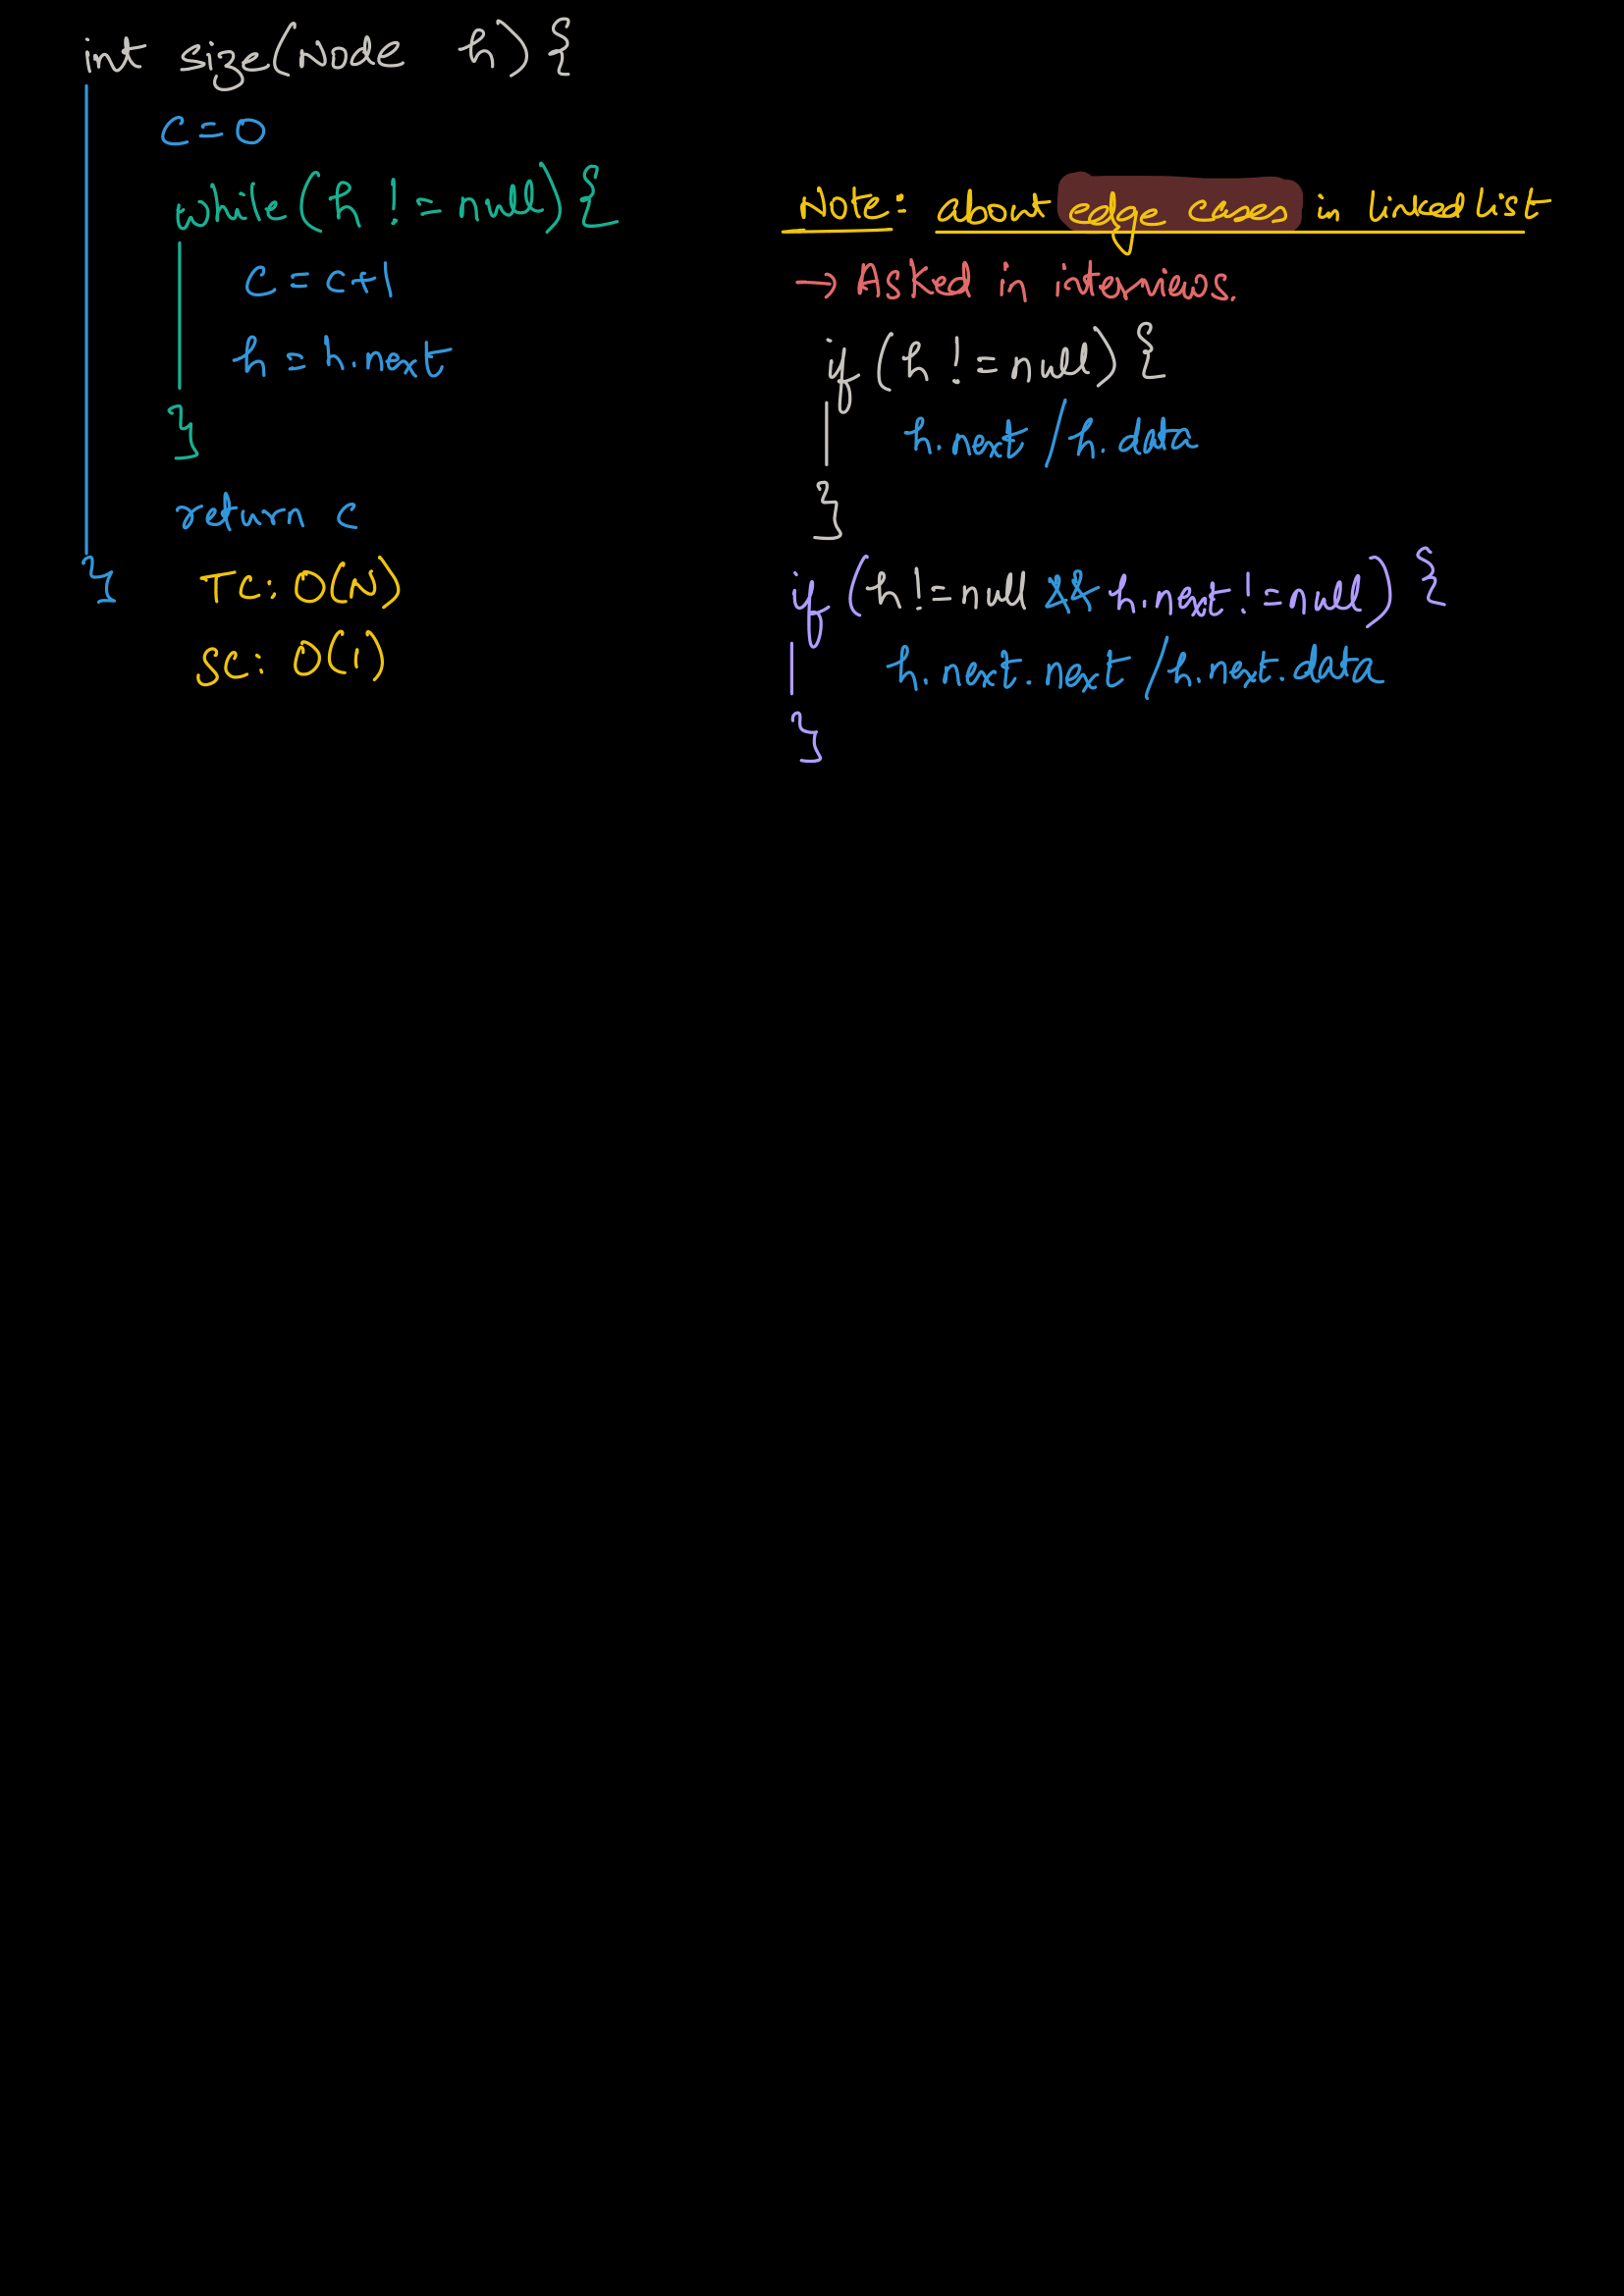 int size(Node h) {
c = 0
while (h != null) {
c = c+1
h = h.next
}
return c
}
TC: O(N)
SC: O(1)
Note: about edge cases in linked list
→ Asked in interviews.
if (h != null) {
h.next / h.data
}
if (h != null && h.next != null) {
h.next.next / h.next.data
}